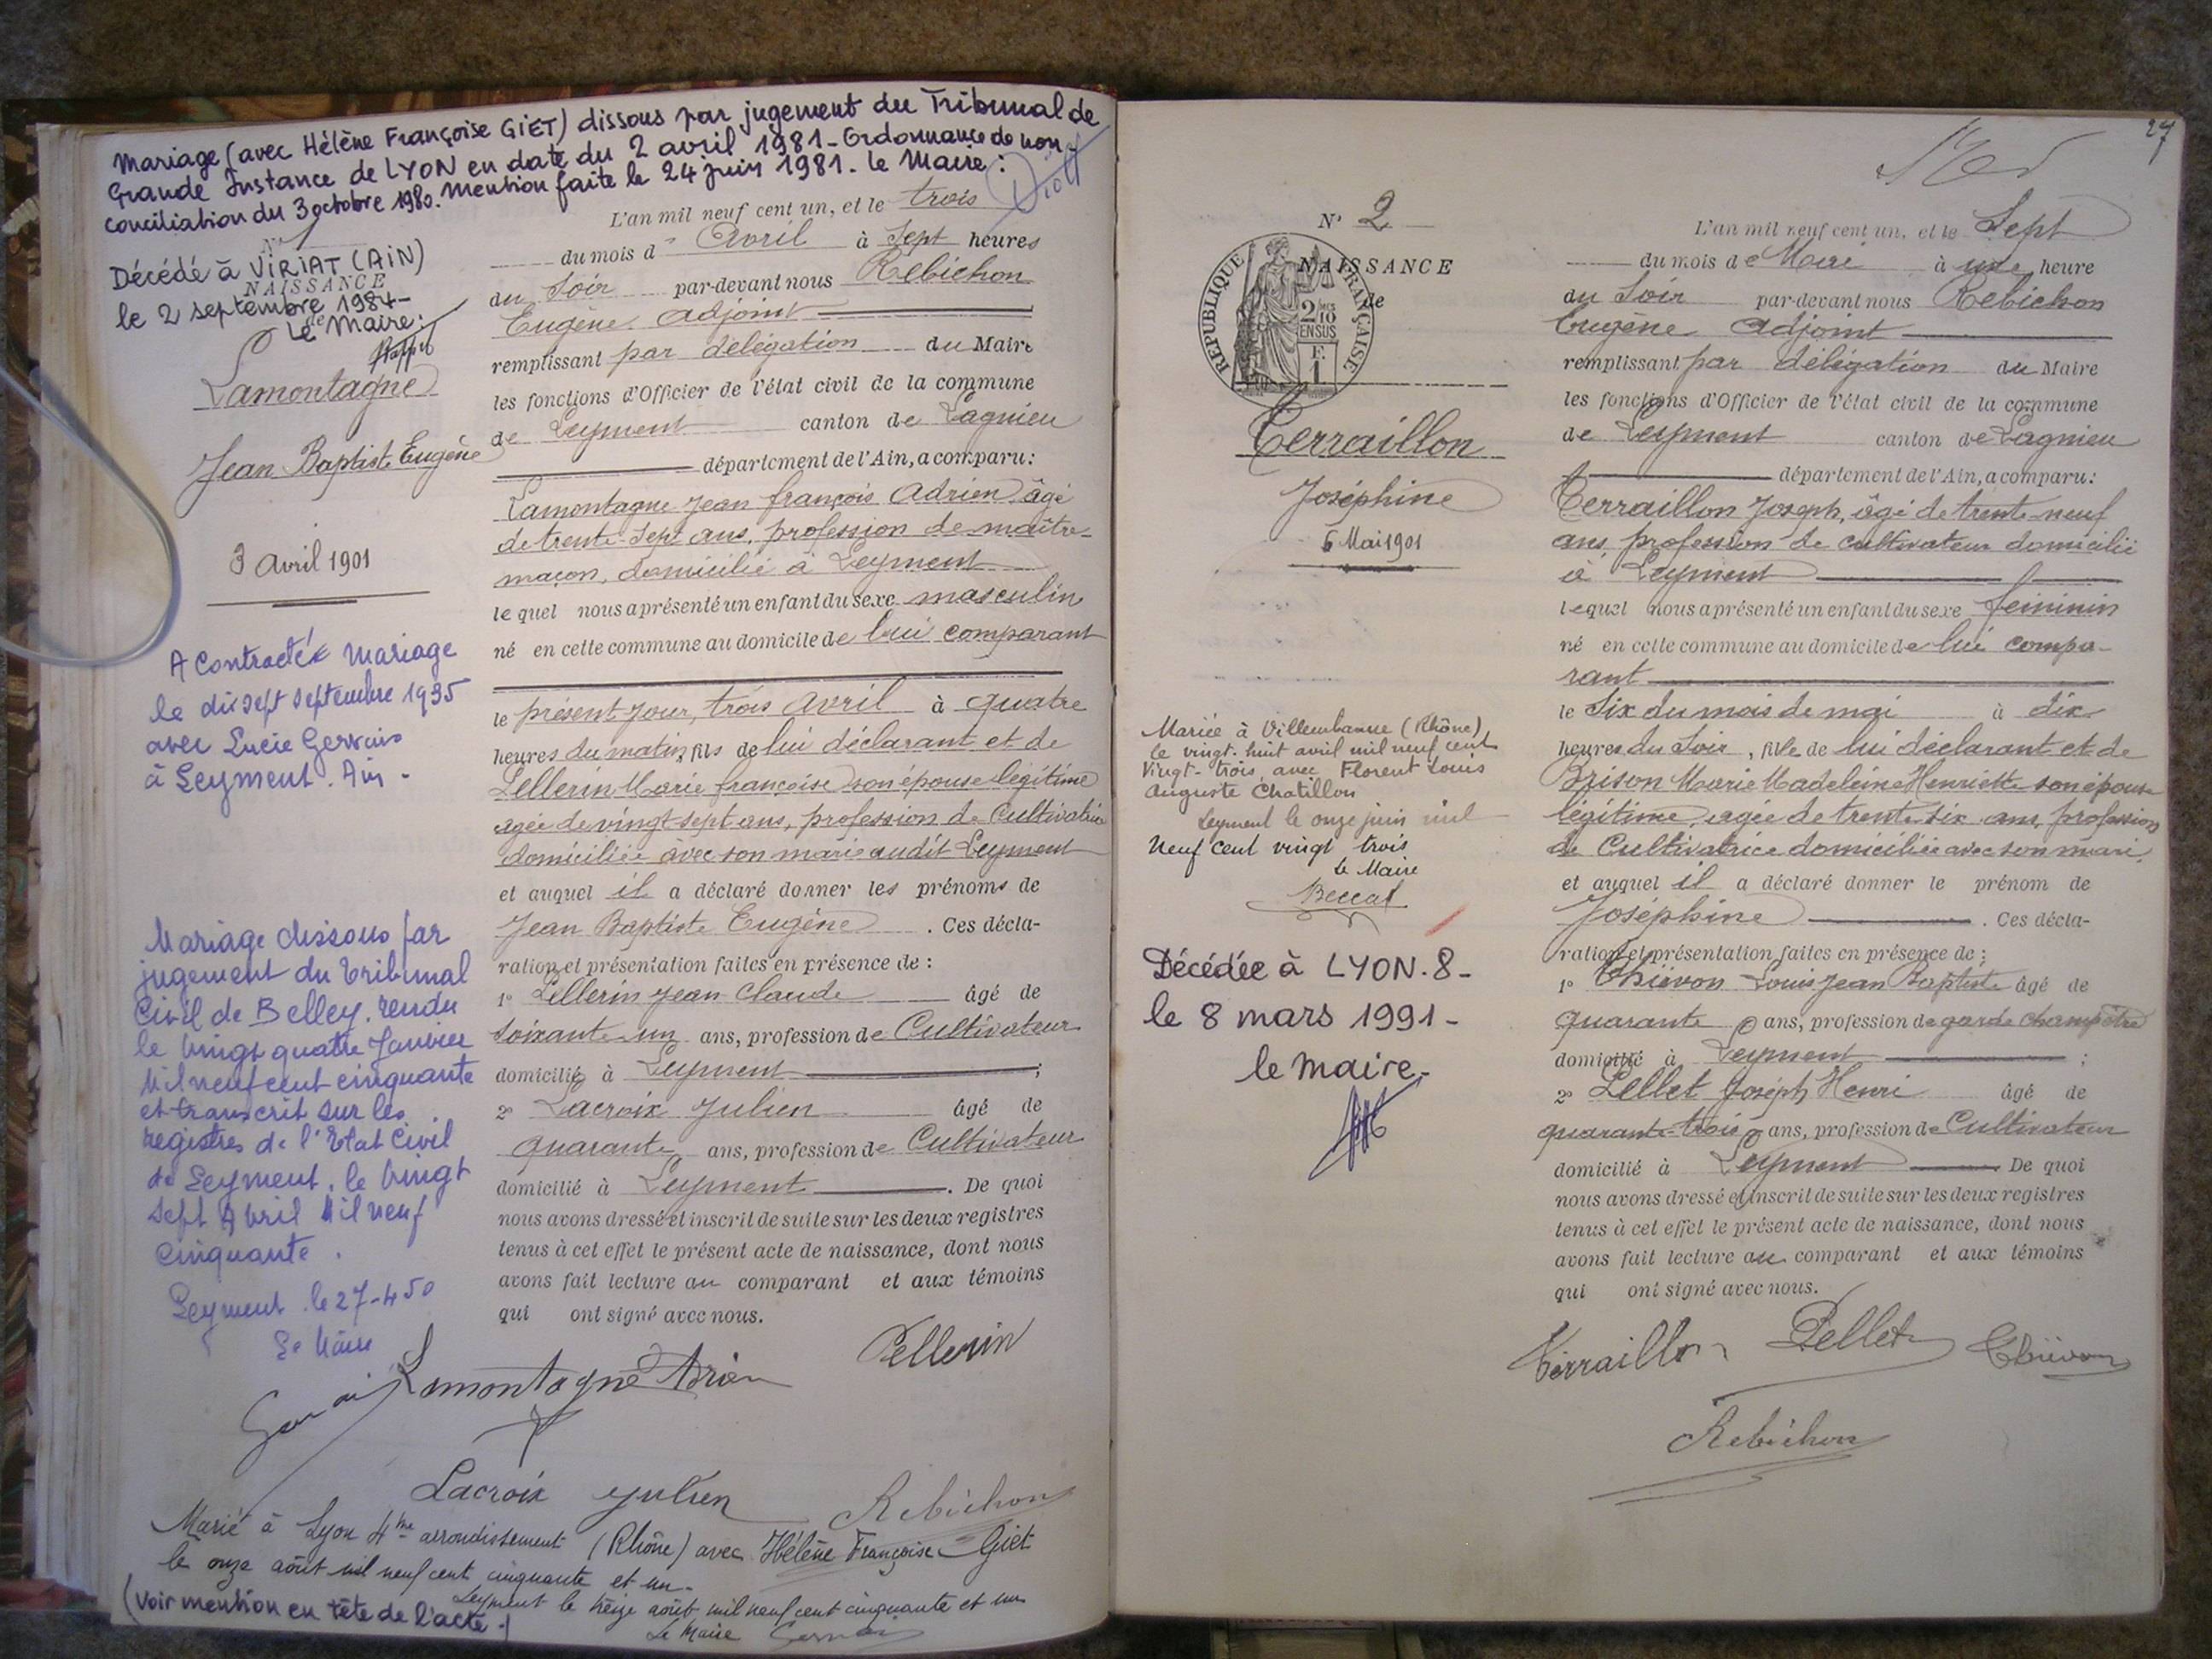 Mariage (avec Hélène Françoise GIET) dissous par jugement du Tribunal de
Grande Instance de LYON en date du 2 avril 1981 - Ordonnance de non
conciliation du 3 octobre 1980. Mention faite le 24 juin 1981. le Maire :
N° 1
NAISSANCE
de
Décédé à VIRIAT (AIN)
le 2 septembre 1984 -
Le Maire :
Lamontagne
Jean Baptiste Eugène
3 Avril 1901
A contracté mariage
le dix sept septembre 1935
avec Lucie Gervais
à Leyment. Ain -
Mariage dissous par
jugement du tribunal
Civil de Belley. rendu
le vingt quatre Janvier
Mil neuf cent cinquante
et transcrit sur les
registres de l'Etat Civil
de Leyment, le vingt
sept Avril Mil neuf
cinquante.
Leyment le 27-4 50
Le Maire
L'an mil neuf cent un, et le trois
du mois d' Avril à Sept heures
du Soir par-devant nous Rebichon
Eugène Adjoint
remplissant par délégation du Maire
les fonctions d'Officier de l'état civil de la commune
de Leyment canton de Lagnieu
département de l'Ain, a comparu :
Lamontagne Jean françois Adrien âgé
de trente-sept ans, profession de maître-
maçon, domicilié à Leyment
lequel nous a présenté un enfant du sexe masculin
né en cette commune au domicile de lui comparant
le présent jour, trois Avril à quatre
heures du matin, fils de lui déclarant et de
Pellerin Marie françoise son épouse légitime
agée de vingt-sept ans, profession de Cultivatrice
domiciliée avec son mari audit Leyment
et auquel il a déclaré donner les prénoms de
Jean Baptiste Eugène. Ces décla-
ration et présentation faites en présence de :
1° Pellerin Jean Claude âgé de
soixante-un ans, profession de Cultivateur
domicilié à Leyment ;
2° Lacroix Julien âgé de
quarante ans, profession de Cultivateur
domicilié à Leyment. De quoi
nous avons dressé et inscrit de suite sur les deux registres
tenus à cet effet le présent acte de naissance, dont nous
avons fait lecture au comparant et aux témoins
qui ont signé avec nous.
Lamontagne Adrien Pellerin
Lacroix Julien Rebichon
Marié à Lyon 4me arrondissement (Rhône) avec Hélène Françoise Giet
le onze août mil neuf cent cinquante et un -
Leyment le treize août mil neuf cent cinquante et un
(Voir mention en tête de l'acte -)
Le Maire
27
N° 2
NAISSANCE
de
REPUBLIQUE FRANÇAISE
2/10 EN SUS
Terraillon
Joséphine
6 Mai 1901
Mariée à Villeurbanne (Rhône)
le vingt-huit avril mil neuf cent
vingt-trois, avec Florent Louis
Auguste Chatillon
Leyment le onze juin mil
neuf cent vingt trois
le Maire
Beccat
Décédée à LYON.8 -
le 8 mars 1991 -
le Maire -
L'an mil neuf cent un, et le Sept
du mois de Mai à une heure
du Soir par-devant nous Rebichon
Eugène Adjoint
remplissant par délégation du Maire
les fonctions d'Officier de l'état civil de la commune
de Leyment canton de Lagnieu
département de l'Ain, a comparu :
Terraillon Joseph, âgé de trente-neuf
ans, profession de cultivateur domicilié
à Leyment
lequel nous a présenté un enfant du sexe féminin
né en cette commune au domicile de lui compa-
rant
le Six du mois de mai à dix
heures du Soir, fille de lui déclarant et de
Brison Marie Madeleine Henriette son épouse
légitime, agée de trente-six ans, profession
de Cultivatrice domiciliée avec son mari
et auquel il a déclaré donner le prénom de
Joséphine. Ces décla-
ration et présentation faites en présence de :
1° Thiévon Louis Jean Baptiste âgé de
quarante ans, profession de garde champêtre
domicilié à Leyment ;
2° Pellet Joseph Henri âgé de
quarante-trois ans, profession de Cultivateur
domicilié à Leyment. De quoi
nous avons dressé et inscrit de suite sur les deux registres
tenus à cet effet le présent acte de naissance, dont nous
avons fait lecture au comparant et aux témoins
qui ont signé avec nous.
Terraillon Pellet Thiévon
Rebichon